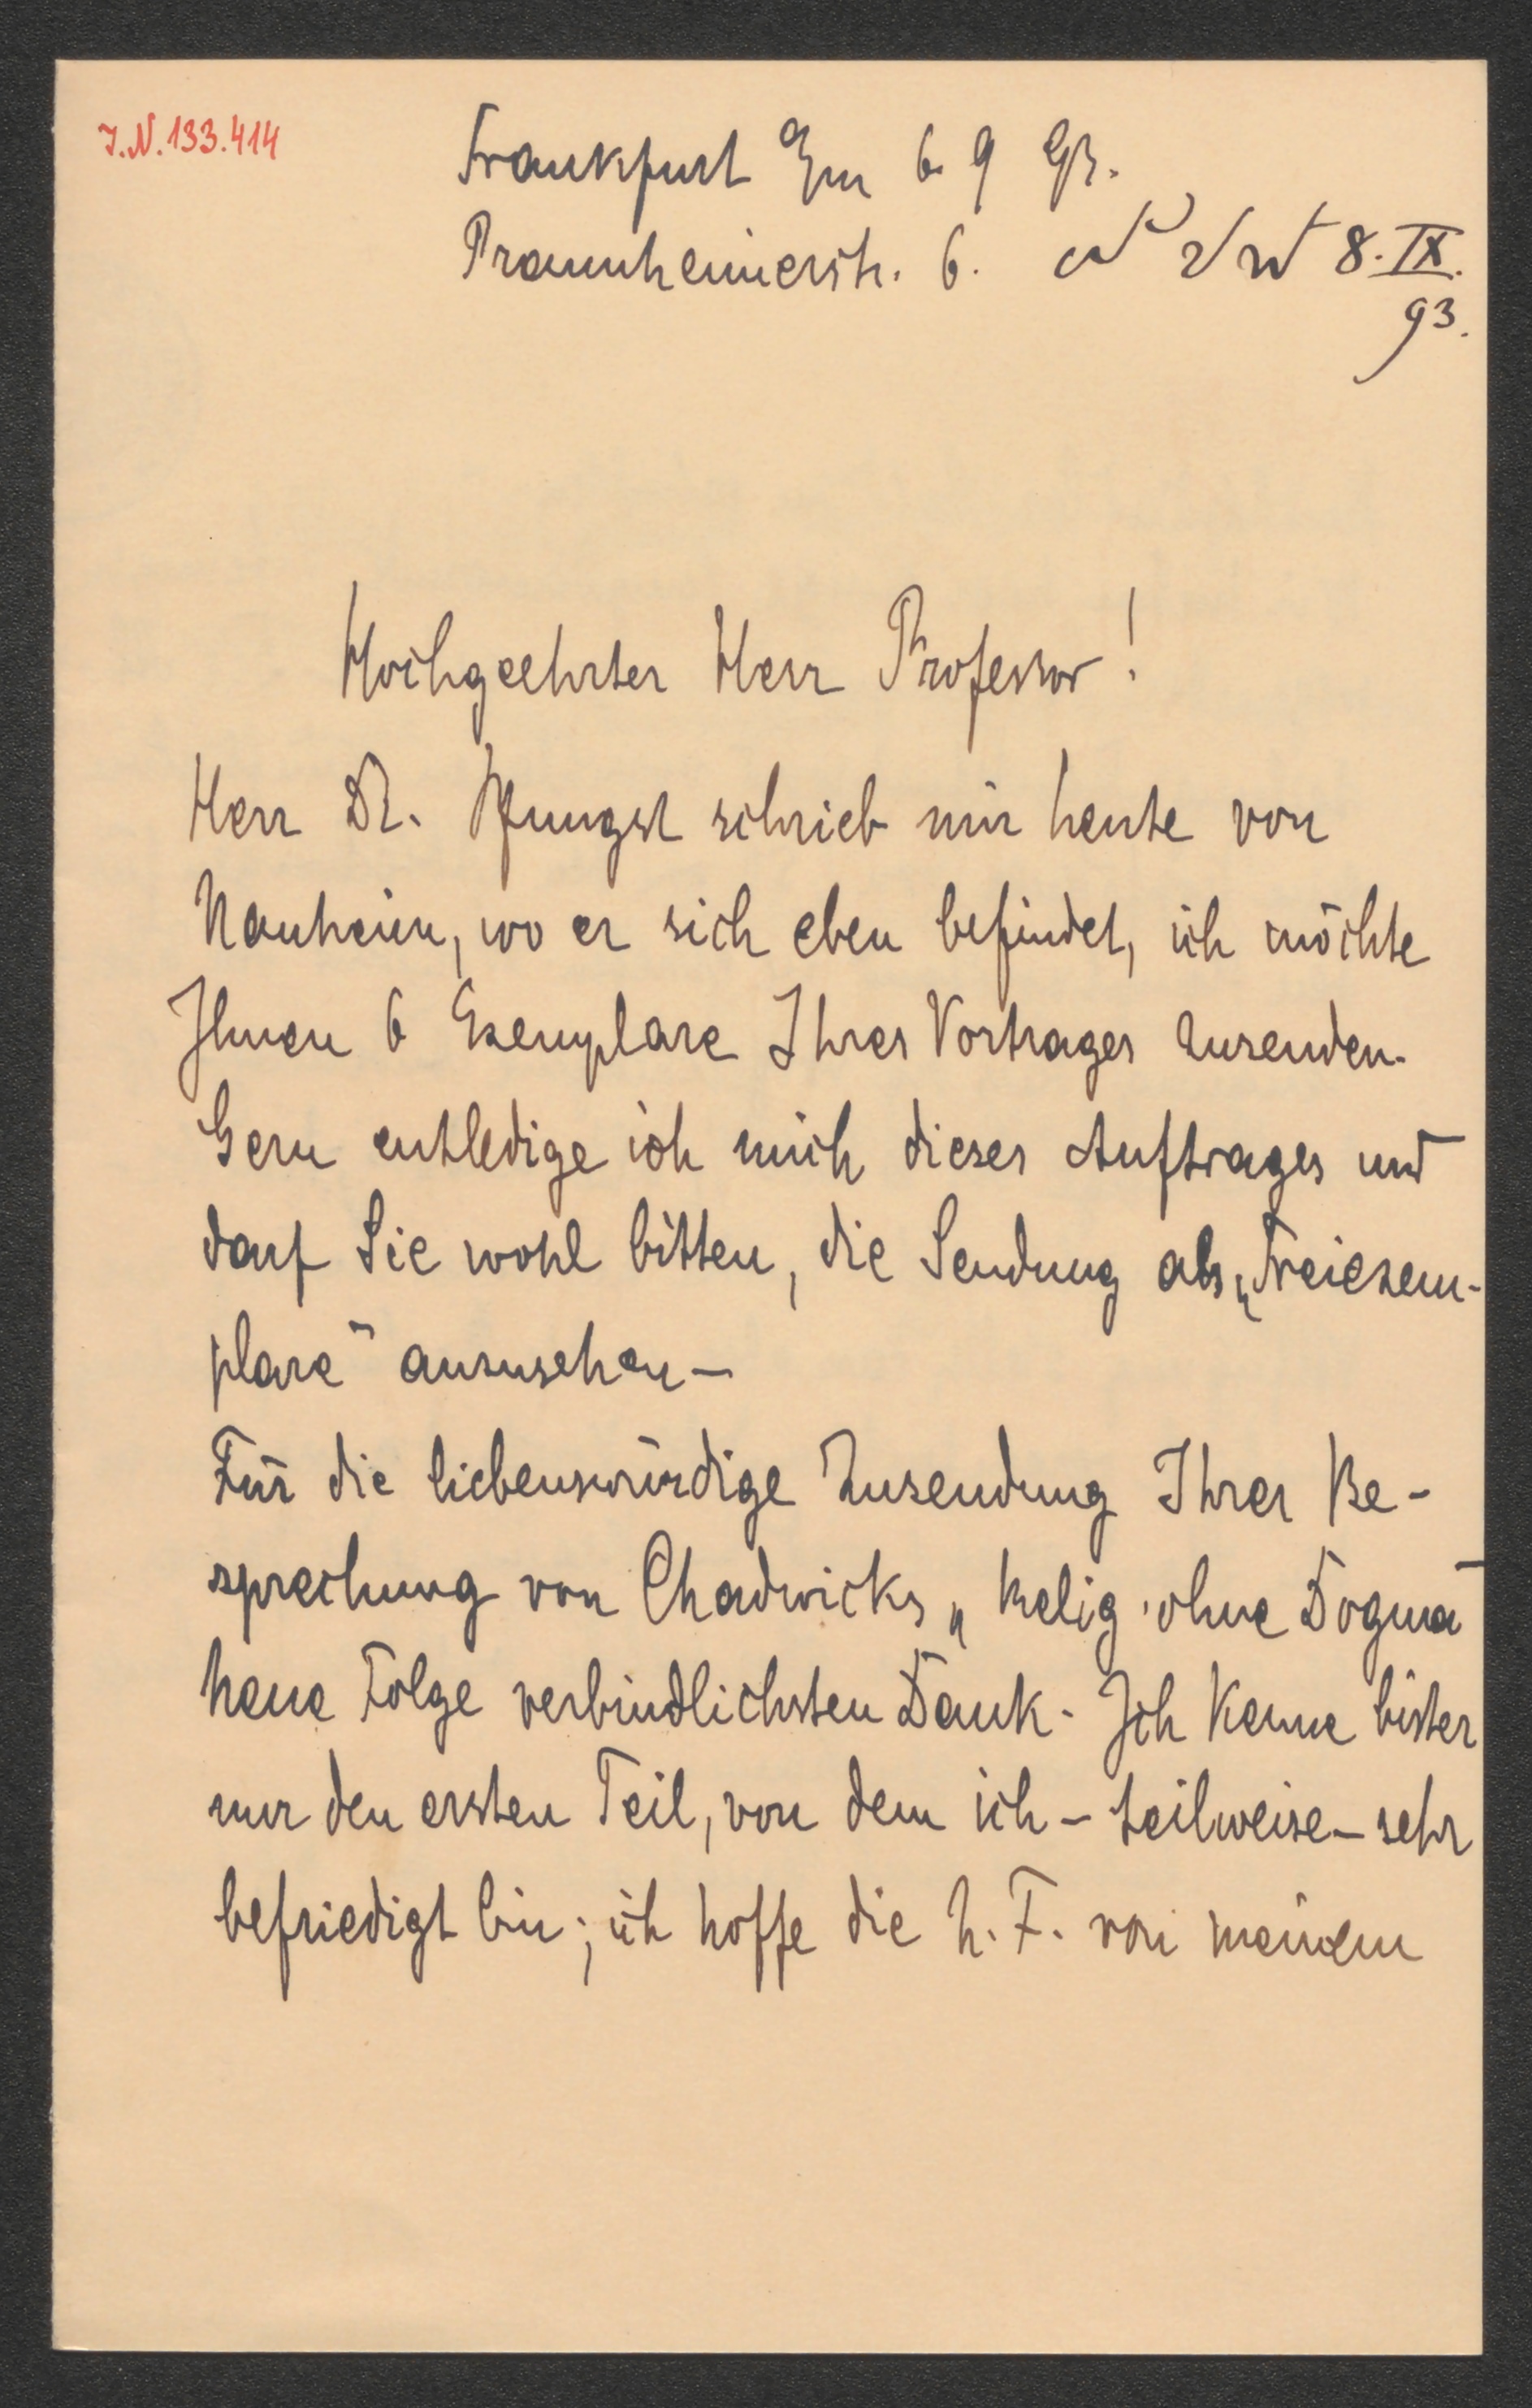 J.N. 133.414
Frankfurt a/m 6. 9 93.
Praunheimerstr. 6. 8. IX.
93.
Hochgeehrter Herr Professor!
Herr Dr. Pfungst schrieb mir heute von
Nauheim, wo er sich eben befindet, ich möchte
Ihnen 6 Exemplare Ihres Vortrages zusenden.
Gern entledige ich mich dieses Auftrages und
darf Sie wohl bitten, die Sendung als „Freiexem-
plare" anzusehen –
Für die liebenswürdige Zusendung Ihrer Be-
sprechung von Chadwicks „Relig. ohne Dogma"
neue Folge verbindlichsten Dank. Ich kenne bisher
nur den ersten Teil, von dem ich – teilweise – sehr
befriedigt bin; ich hoffe die n. F. von meinem